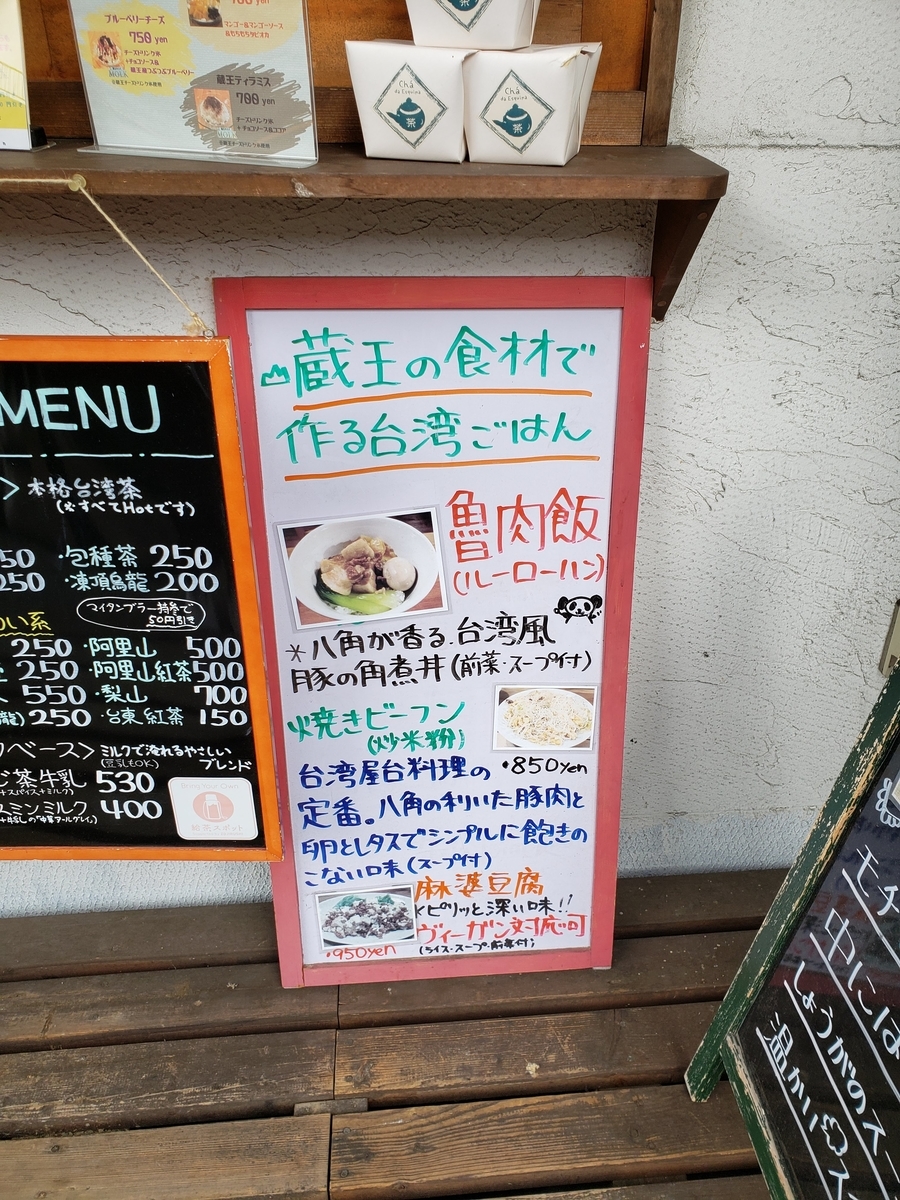 ブルーベリーチーズ
750 yen
チーズドリンク氷
+チョコソース&
蔵王つぶつぶブルーベリー
マンゴー&マンゴーソース
&もちもちタピオカ
蔵王ティラミス
700 yen
チーズドリンク氷
+チョコソース&ココア
Chà
da Cuoina
茶
Chà
da Cuoina
茶
MENU
本格台湾茶
(※すべてHotです)
50 ・包種茶 250
250 ・凍頂烏龍 200
マイタンブラー持参で
50円引き
い系
250 ・阿里山 500
250 ・阿里山紅茶 500
550 ・梨山 700
250 ・台東紅茶 150
ベース> ミルクで淹れるやさしい
(豆乳もOK) ブレンド
茶牛乳 530
+スパイス+ミルク)
スミンミルク 400
給茶スポット
蔵王の食材で
作る台湾ごはん
魯肉飯
(ルーローハン)
*八角が香る、台湾風
豚の角煮丼(前菜・スープ付)
焼きビーフン
(炒米粉)
・850yen
台湾屋台料理の
定番。八角の利いた豚肉と
卵とレタスでシンプルに飽きの
こない口味(スープ付)
麻婆豆腐
ピリッと深い味!!
ヴィーガン対応可
(ライス・スープ・前菜付)
・950yen
中には
しょうがのス
温かい